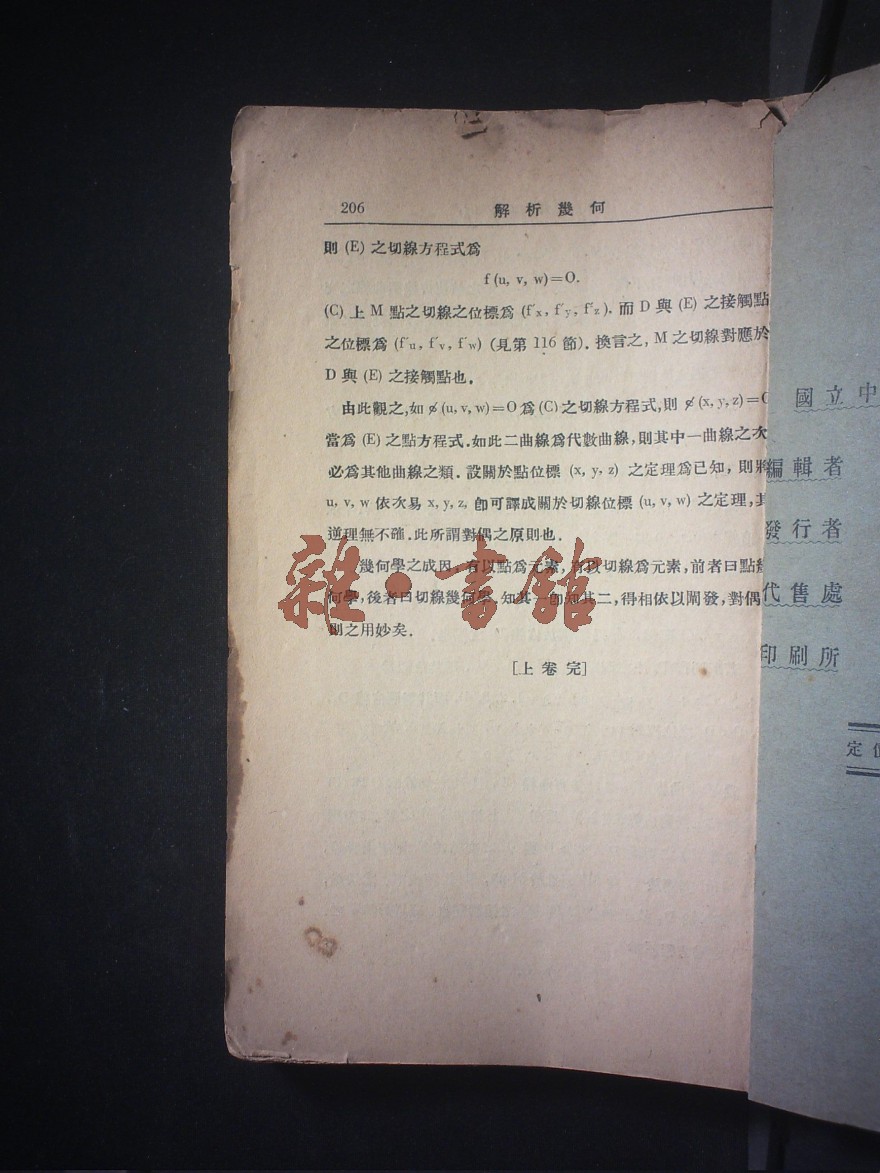 206 解析幾何
則 (E) 之切線方程式爲
f (u, v, w)=O.
(C) 上 M 點之切線之位標爲 (f′x, f′y, f′z), 而 D 與 (E) 之接觸點
之位標爲 (f′u, f′v, f′w) (見第 116 節). 換言之, M 之切線對應於
D 與 (E) 之接觸點也.
由此觀之,如 (u, v, w)=O 爲 (C) 之切線方程式,則 (x, y, z)=
當爲 (E) 之點方程式.如此二曲線爲代數曲線,則其中一曲線之次
必爲其他曲線之類. 設關於點位標 (x, y, z) 之定理爲已知, 則將
u, v, w 依次易 x, y, z, 卽可譯成關於切線位標 (u, v, w) 之定理, 其
逆理無不確.此所謂對偶之原則也.
幾何學之成因,有以點爲元素,有以切線爲元素,前者曰點
何學,後者曰切線幾何學.知其一卽知其二,得相依以闡發,對偶
之用妙矣.
[上卷完]
雜·書館
國立中
編輯者
發行者
代售處
印刷所
定價